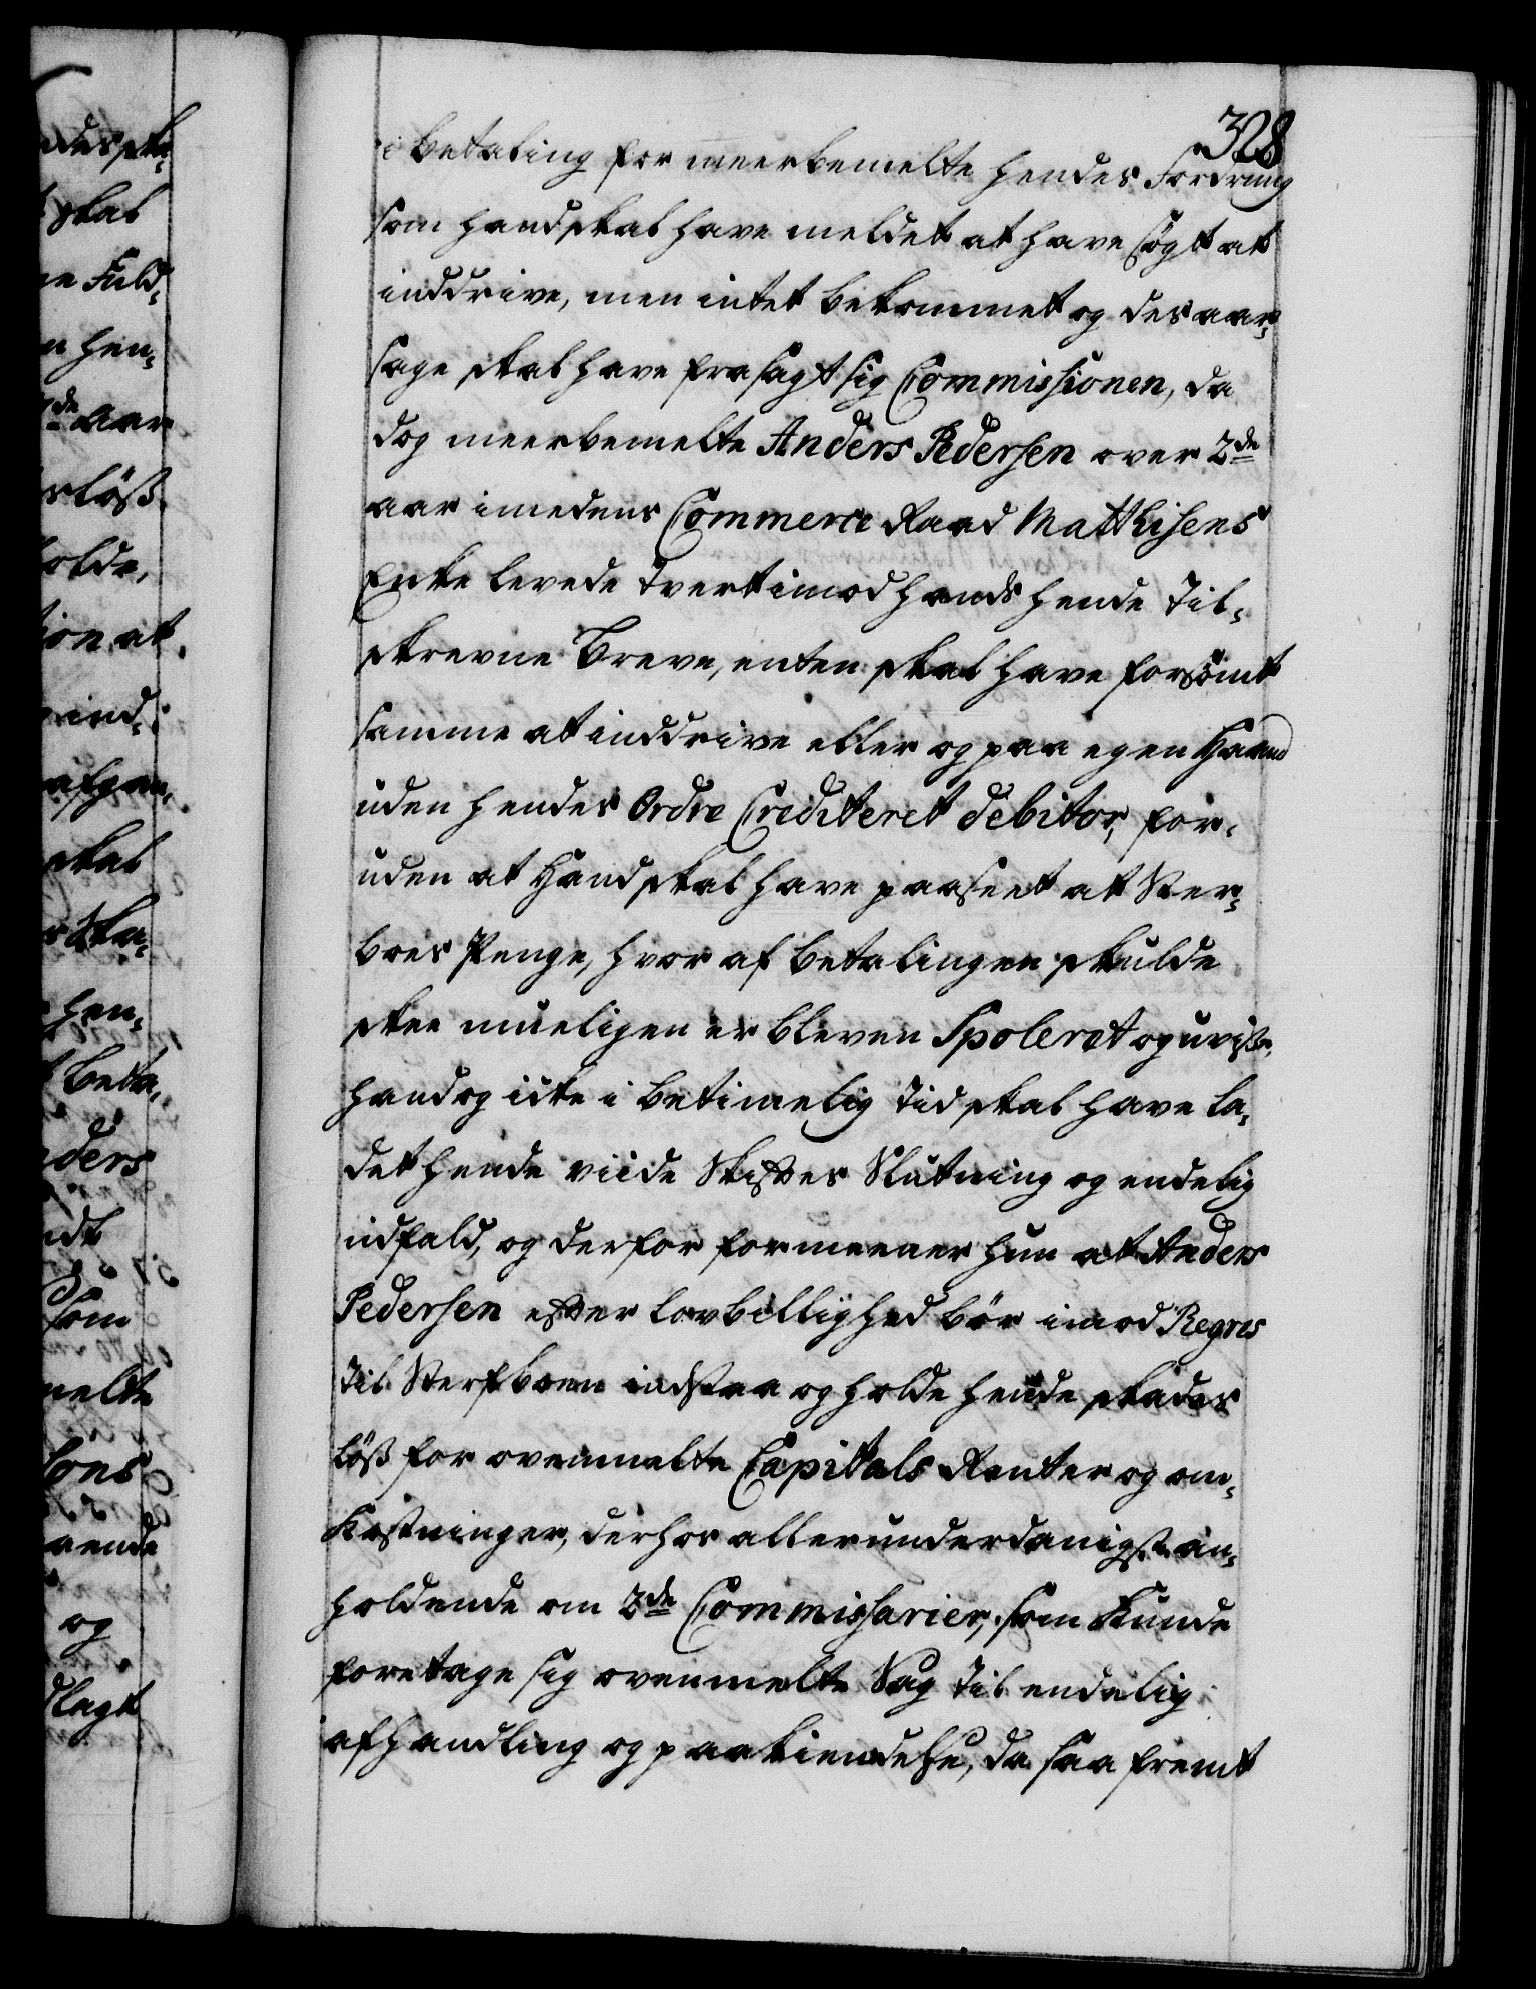 328
i betaling for meerbemelte hendes Fordring
som hand skal have meldet at have søgt at
inddrive, men intet bekommet og des aar,
sage skal have frasagt sig Commissionen, da
dog meerbemelte Anders Pedersen over 2de
aar imedens Commerce Raad Matthisens
Enke levede tvertimod hands hende til,
skrevne Breve, enten skal have forsømt
samme at inddrive eller og paa egen Haand
uden hendes Ordre Crediteret debitor, for,
uden at Hand skal have paaseet at Ster,
boes Penge, hvor af betalingen skulde
skee mueligen er bleven Spoleret og uvisse,
hand og icke i betimelig Tid skal have la,
det hende viide Skiftes Slutning og endelig
udfald, og derfor formeener hun at Anders
Pedersen efter lovbillighed bør imod Regres
til Sterfboen indstaa og holde hende skades
løß for ovenmelte Capitals Renter og om,
Kostninger, derhos allerunderdanigst an,
holdende om 2de Commissarier, som kunde
foretage sig ovenmelte Sag til endelig
afhandling og paakiendelse, da saa fremt
skal
Fuld,
hen,
de aar
løß
holde,
ion at
ind,
afgan,
skal
Ska,
hen,
beta,
ders
som
melte
og